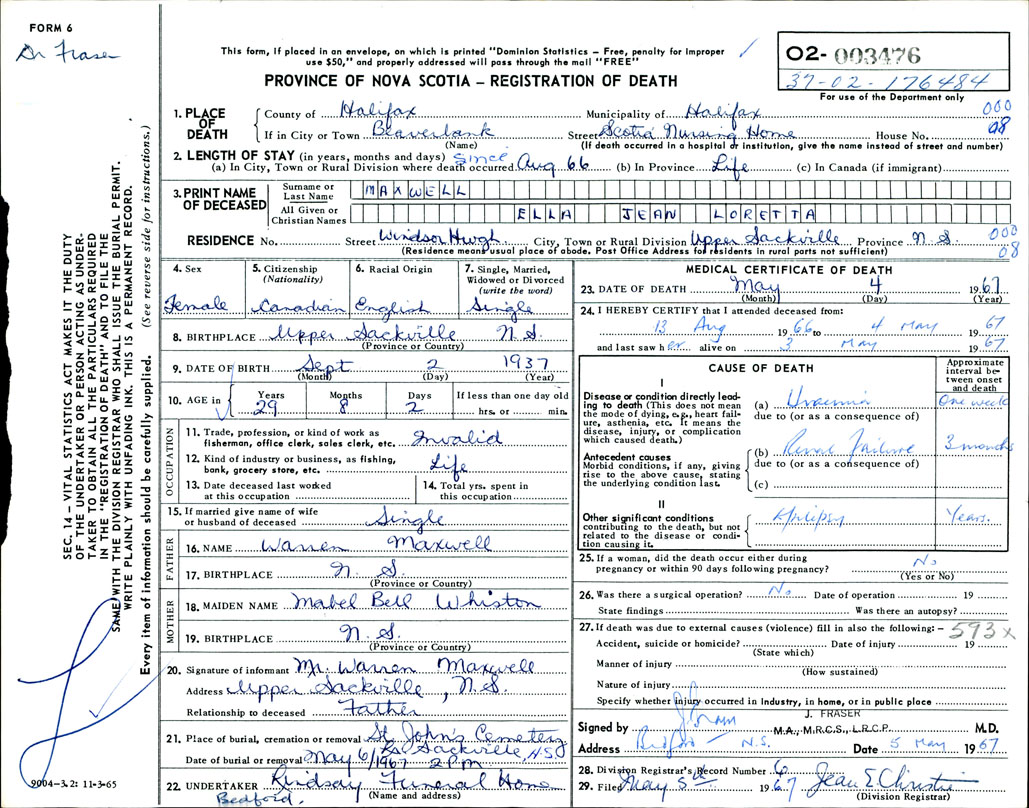 FORM 6
Dr Fraser
This form, if placed in an envelope, on which is printed "Dominion Statistics – Free, penalty for improper
use $50," and properly addressed will pass through the mail "FREE"
PROVINCE OF NOVA SCOTIA – REGISTRATION OF DEATH
02- 003476
37-02-176484
For use of the Department only
SEC. 14 – VITAL STATISTICS ACT MAKES IT THE DUTY
OF THE UNDERTAKER OR PERSON ACTING AS UNDER-
TAKER TO OBTAIN ALL THE PARTICULARS REQUIRED
IN THE "REGISTRATION OF DEATH" AND TO FILE THE
SAME WITH THE DIVISION REGISTRAR WHO SHALL ISSUE THE BURIAL PERMIT.
WRITE PLAINLY WITH UNFADING INK. THIS IS A PERMANENT RECORD.
Every item of information should be carefully supplied. (See reverse side for instructions.)
1. PLACE OF DEATH County of Halifax Municipality of Halifax 000
If in City or Town Beaverbank Street Scotia Nursing Home House No. 08
(Name) (If death occurred in a hospital or institution, give the name instead of street and number)
2. LENGTH OF STAY (in years, months and days) Since
(a) In City, Town or Rural Division where death occurred Aug 66 (b) In Province Life (c) In Canada (if immigrant)
3. PRINT NAME OF DECEASED Surname or Last Name MAXWELL
All Given or Christian Names ELLA JEAN LORETTA
RESIDENCE No. Street Windsor Hwgh City, Town or Rural Division Upper Sackville Province N.S. 000
(Residence means usual place of abode. Post Office Address for residents in rural parts not sufficient) 08
4. Sex 5. Citizenship (Nationality) 6. Racial Origin 7. Single, Married, Widowed or Divorced (write the word)
Female Canadian English Single
8. BIRTHPLACE Upper Sackville N.S.
(Province or Country)
9. DATE OF BIRTH Sept 2 1937
(Month) (Day) (Year)
10. AGE in Years Months Days If less than one day old
29 8 2 hrs. or min.
OCCUPATION
11. Trade, profession, or kind of work as
fisherman, office clerk, sales clerk, etc. Invalid
12. Kind of industry or business, as fishing,
bank, grocery store, etc. Life
13. Date deceased last worked at this occupation 14. Total yrs. spent in this occupation
15. If married give name of wife
or husband of deceased Single
FATHER
16. NAME Warren Maxwell
17. BIRTHPLACE N.S.
(Province or Country)
MOTHER
18. MAIDEN NAME Mabel Bell Whiston
19. BIRTHPLACE N.S.
(Province or Country)
20. Signature of informant Mr. Warren Maxwell
Address Upper Sackville, N.S.
Relationship to deceased Father
21. Place of burial, cremation or removal St. John's Cemetery
Sackville, N.S.
Date of burial or removal May 6/1967 2 PM
22. UNDERTAKER Lindsay Funeral Home
Bedford. (Name and address)
9004-3.2: 11-3-65
MEDICAL CERTIFICATE OF DEATH
23. DATE OF DEATH May 4 1967
(Month) (Day) (Year)
24. I HEREBY CERTIFY that I attended deceased from:
13 Aug 1966 to 4 May 1967
and last saw her alive on 3 May 1967
CAUSE OF DEATH Approximate interval be-tween onset and death
I
Disease or condition directly lead-
ing to death (This does not mean
the mode of dying, e.g., heart fail-
ure, asthenia, etc. It means the
disease, injury, or complication
which caused death.)
(a) Uraemia One week
due to (or as a consequence of)
Antecedent causes
Morbid conditions, if any, giving
rise to the above cause, stating
the underlying condition last.
(b) Renal Failure 3 months
due to (or as a consequence of)
(c)
II
Other significant conditions
contributing to the death, but not
related to the disease or condi-
tion causing it.
Epilepsy Years.
25. If a woman, did the death occur either during
pregnancy or within 90 days following pregnancy? No
(Yes or No)
26. Was there a surgical operation? No Date of operation 19
State findings Was there an autopsy?
27. If death was due to external causes (violence) fill in also the following: – 593x
Accident, suicide or homicide? Date of injury 19
(State which)
Manner of injury
(How sustained)
Nature of injury
Specify whether injury occurred in Industry, in home, or in public place
J. FRASER
Signed by M.A., M.R.C.S., L.R.C.P. M.D.
Address Bedford N.S. Date 5 May 1967
28. Division Registrar's Record Number 6
29. Filed May 5th 1967 Jean E Christie
(Division Registrar)